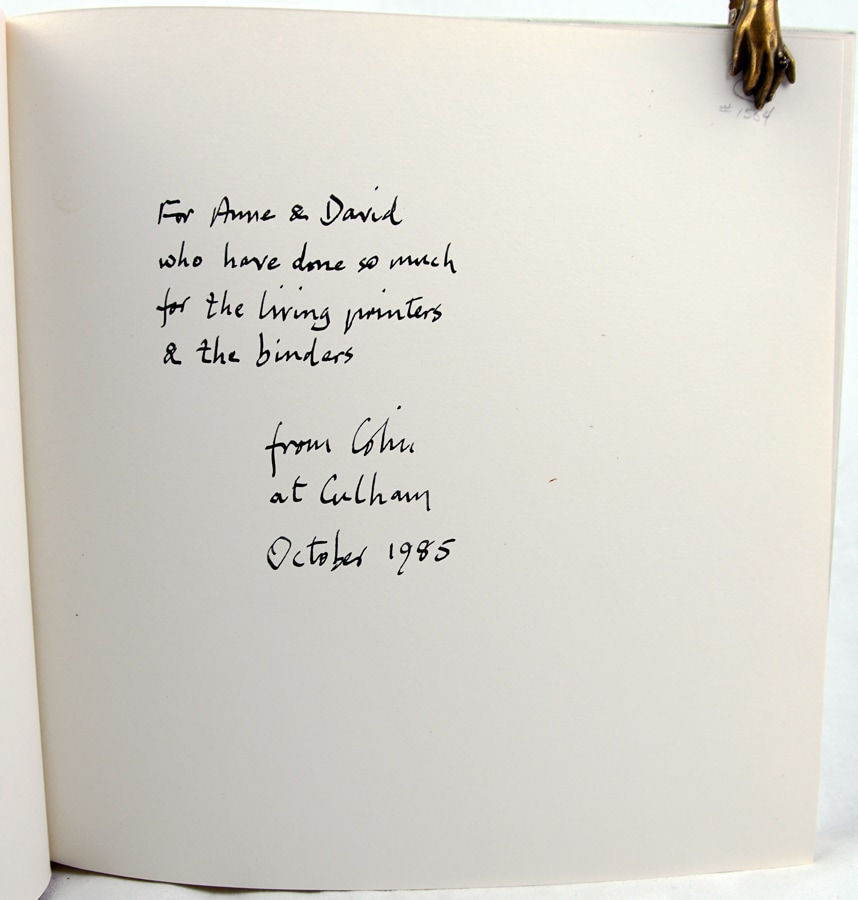 #1564
For Anne & David
who have done so much
for the living printers
& the binders
from Colin
at Culham
October 1985